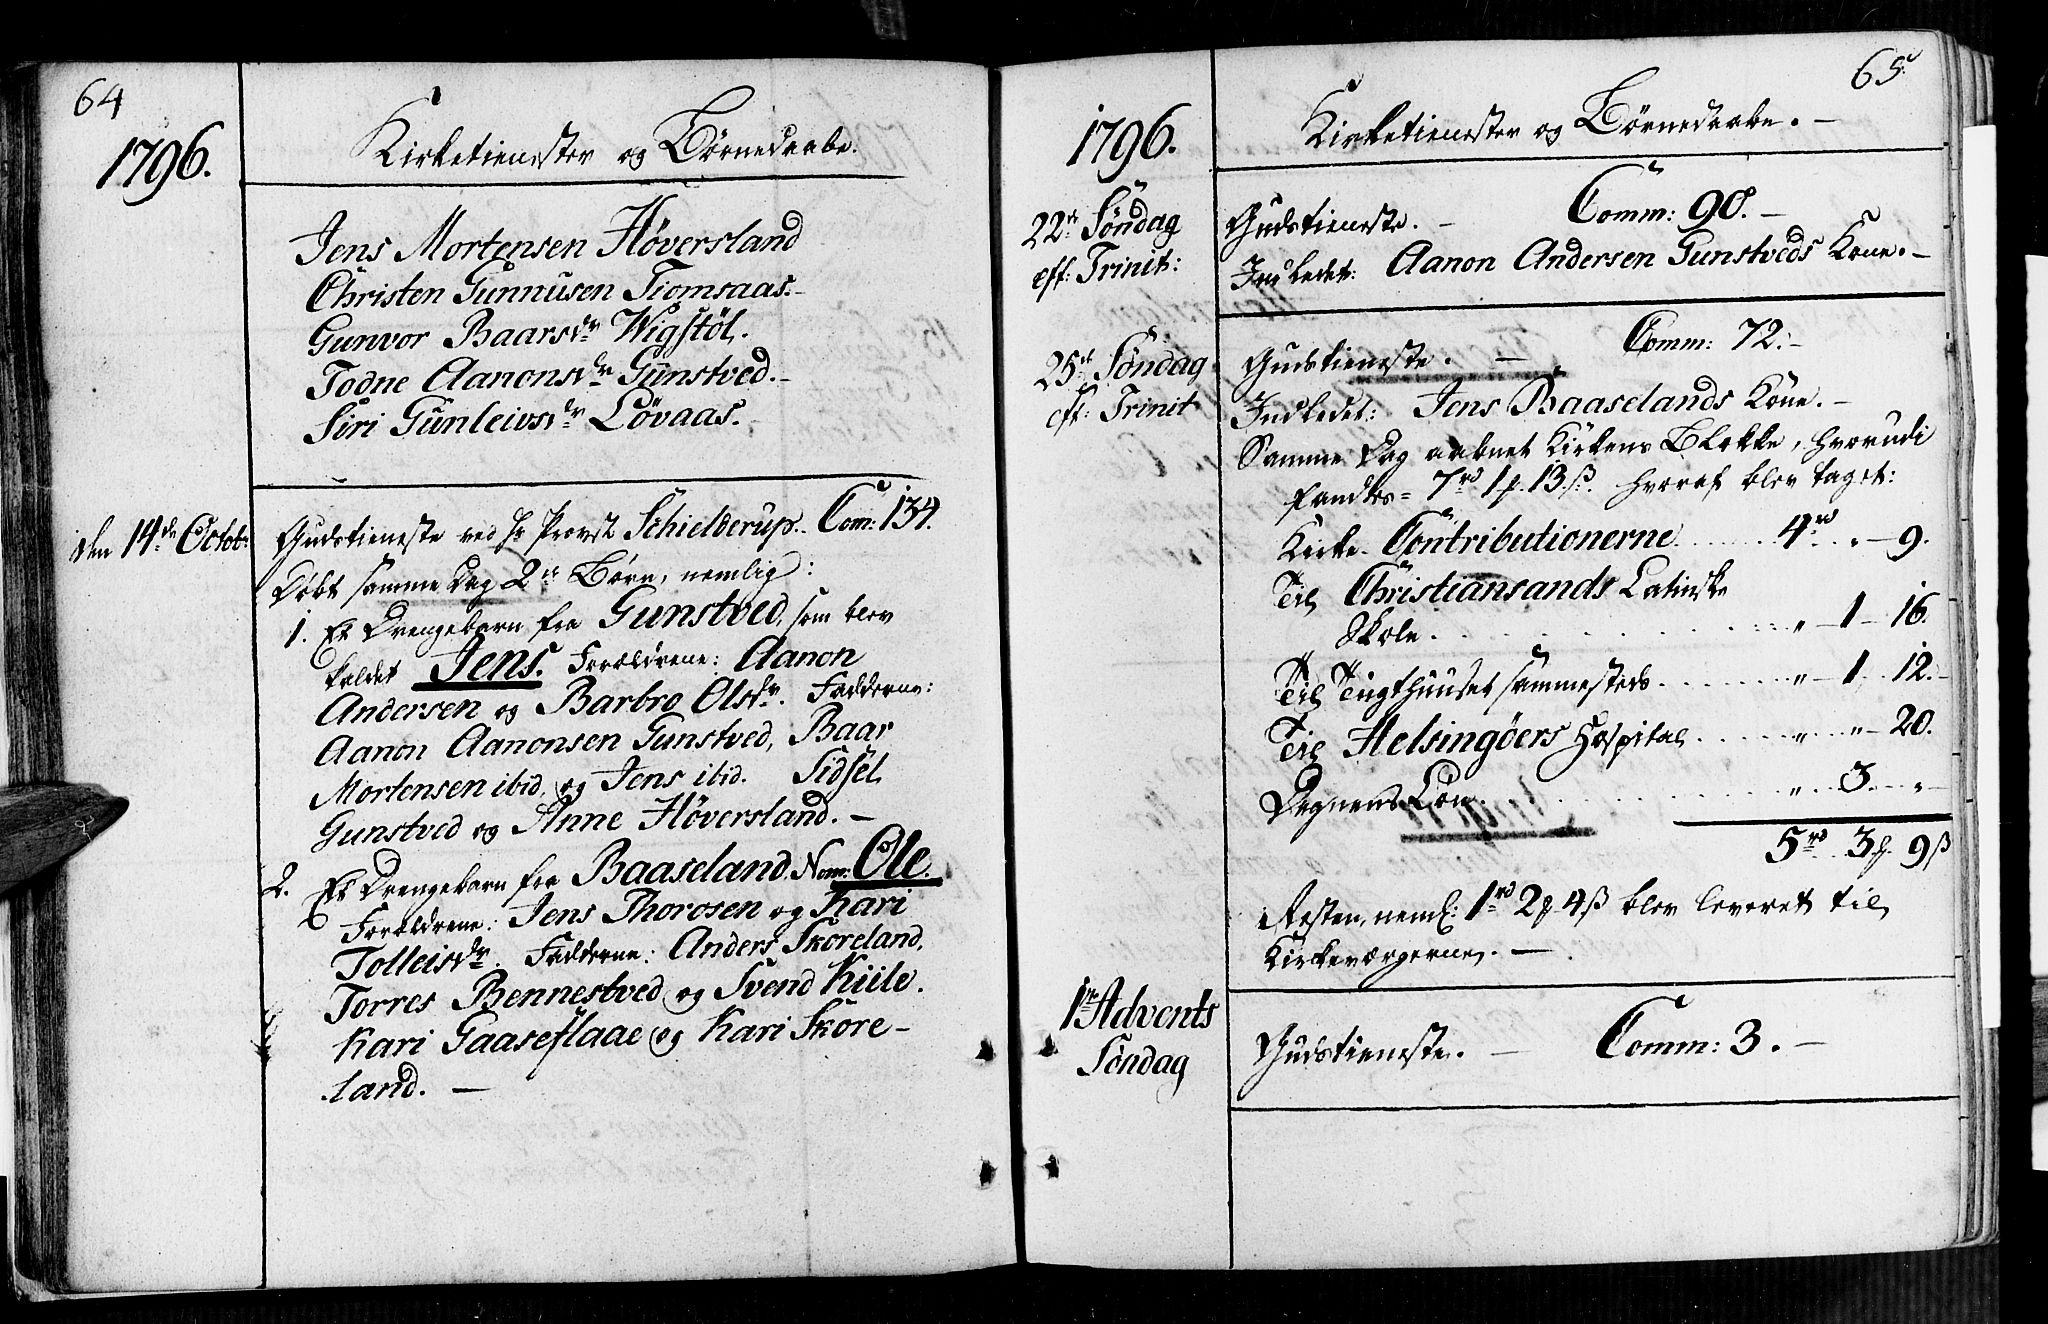 64
1796.
Kirketienester og Börnedaabe.
Jens Mortensen Høversland
Christen Gunnusen Tiomsaas.-
Gunvor Baarsdr Wigstöl.
Todne Aanonsdr Gunstved.-
Siri Gunleivsdr Lövaas.
den 14de Octobr
Gudstieneste ved Hr Provst Schielderup. Com: 134.
Döbt samme Dag 2de Börn, nemlig:
1. Et Drengebarn fra Gunstved, som blev
kaldet Jens. Forældrene: Aanon
Andersen og Barbro Olsdr. Fadderne:
Aanon Aanonsen Gunstved, Baar
Mortensen ibid. og Jens ibid. Sidsel
Gunstved og Anne Høversland.-
2. Et Drengebarn fra Baaseland. Nom: Ole.
Forældrene: Jens Thorosen og Kari
Tolleisdr. Fadderne: Anders Skoreland,
Torres Bennestved og Svend Kiile.
Kari Gaaseflaae og Kari Skore-
land.-
65.
1796.
Kirketienester og Börnedaabe.-
22de Söndag
eff: Trinit:
Gudstieneste.- Comm: 90.-
Indledet: Aanon Andersen Gunstveds Kone.-
25de Söndag
eff: Trinit
Gudstieneste.- Comm: 72.-
Indledet: Jens Baaselands Kone.-
Samme Dag aabnet Kirkens Blokke, hvorudi
fandtes= 7rd 1p 13ß. hvoraf blev taget:
Kirke-Contributionerne....... 4rd. " - 9.
Til Christiansands Latinske
Skole............ " - 1 - 16.
Til Tugthuuset sammesteds....... " - 1. 12.-
Til Helsingöers Hospital....... " " - 20.
Degnens Lön............ " 3. "-
5rd. 3p 9ß
Resten, neml: 1rd 2p 4ß blev leveret til
Kirkeværgerne.-
1te Advents
Söndag
Gudstieneste.- Comm: 3.-